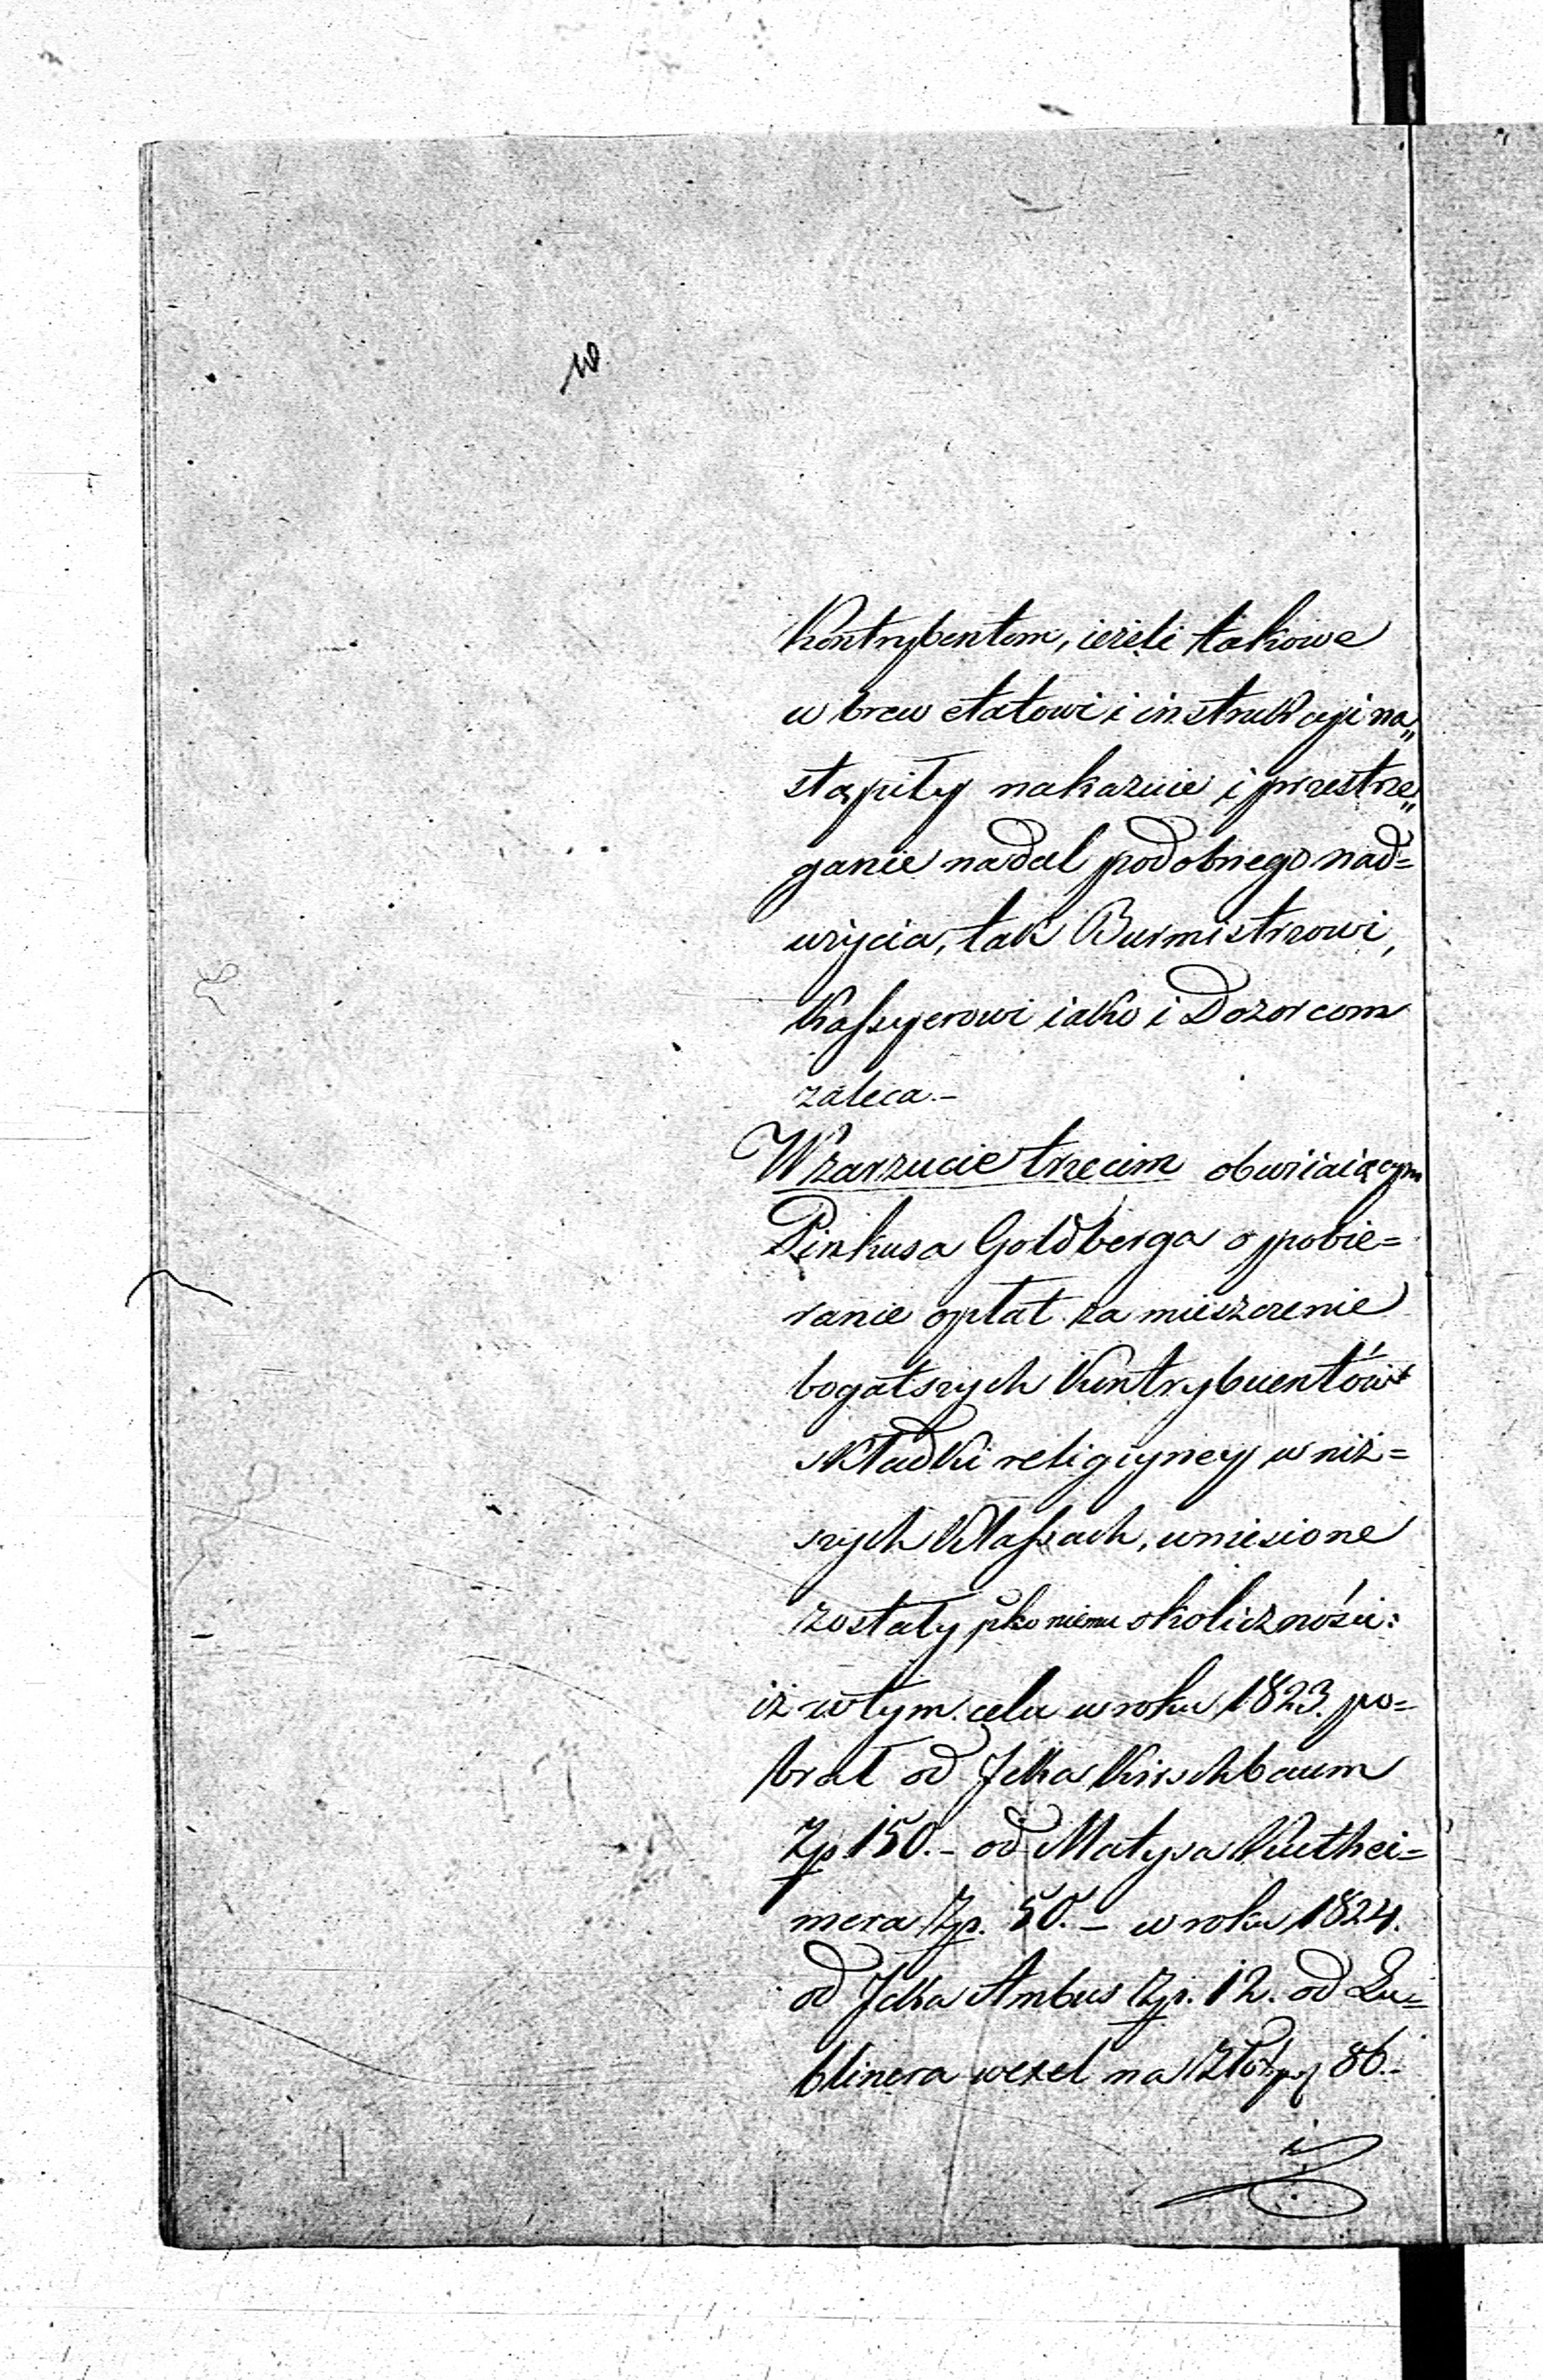 Kontrybentom, ieżeli takowe
w brew etatowi i instrukcyi na„
stąpiły nakazuie i przestrze„
ganie nadal podobnego nad=
użycia, tak Burmistrzowi,
Kassyerowi iako i Dozorcom
zaleca.-
W zarzucie trzecim obwiniaiącym
Pinkusa Goldberga o pobie=
ranie opłat za mieszczenie
bogatszych Kontrybuentów
składki religiyney w niż=
szych Klassach, wniesione
zostały pko niemu okoliczności:
iż w tym celu w roku 1823. po=
brał od Jcka Kirschbaum
Zp. 150.- od Matysa
mera Zp. 50.- w roku 1824.
od Jcka Ambus Zp. 12. od Lu=
blinera wexel na Złotp 86.-
i